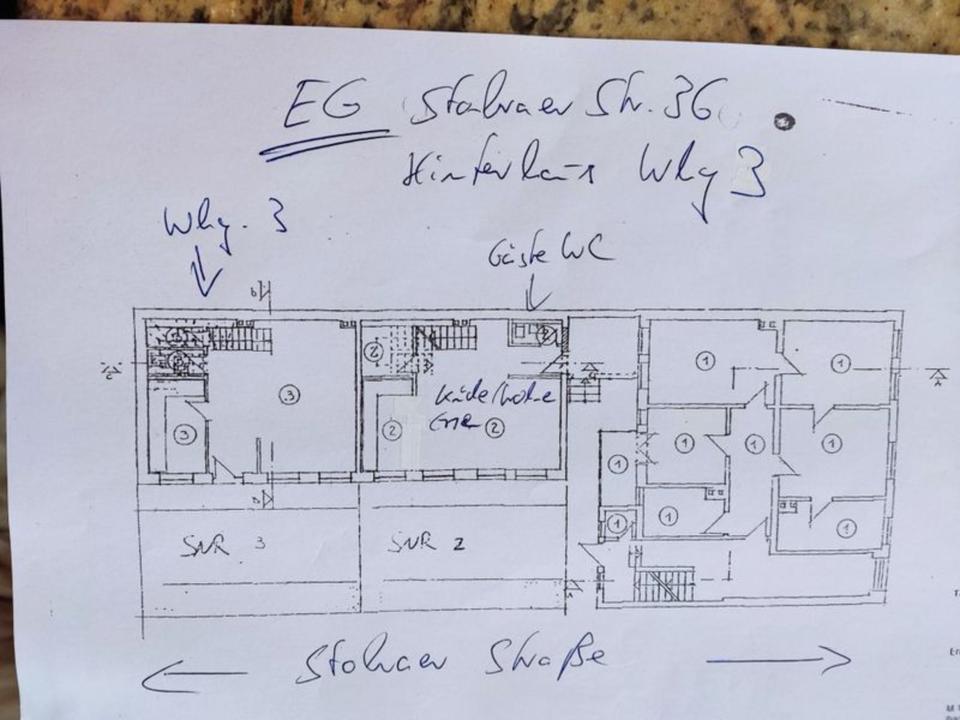 EG Stolraer Str. 36
Hinterhaus Whg 3
Whg. 3
Gäste WC
b
3
3
2
3
3
2
2
2
Küche/Wohn
SNR 3
SNR 2
1
1
1
1
1
1
1
1
1
Stolraer Straße